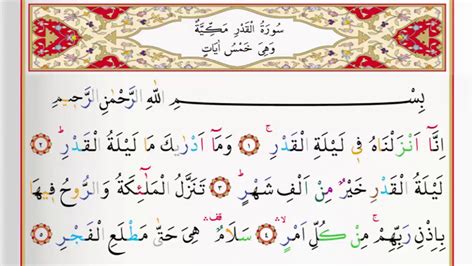 سُورَةُ الْقَدْرِ مَكِّيَّةٌ
وَهِىَ خَمْسُ اٰيَاتٍ
بِسْمِ اللّٰهِ الرَّحْمٰنِ الرَّحٖيمِ
اِنَّٓا اَنْزَلْنَاهُ فٖى لَيْلَةِ الْقَدْرِۚ ﴿١﴾ وَمَٓا اَدْرٰيكَ مَا لَيْلَةُ الْقَدْرِؕ ﴿٢﴾
لَيْلَةُ الْقَدْرِ خَيْرٌ مِنْ اَلْفِ شَهْرٍؕ ﴿٣﴾ تَنَزَّلُ الْمَلٰٓئِكَةُ وَالرُّوحُ فٖيهَا
بِاِذْنِ رَبِّهِمْۚ مِنْ كُلِّ اَمْرٍۙۛ ﴿٤﴾ سَلَامٌࣞۛ هِىَ حَتّٰى مَطْلَعِ الْفَجْرِ ﴿٥﴾